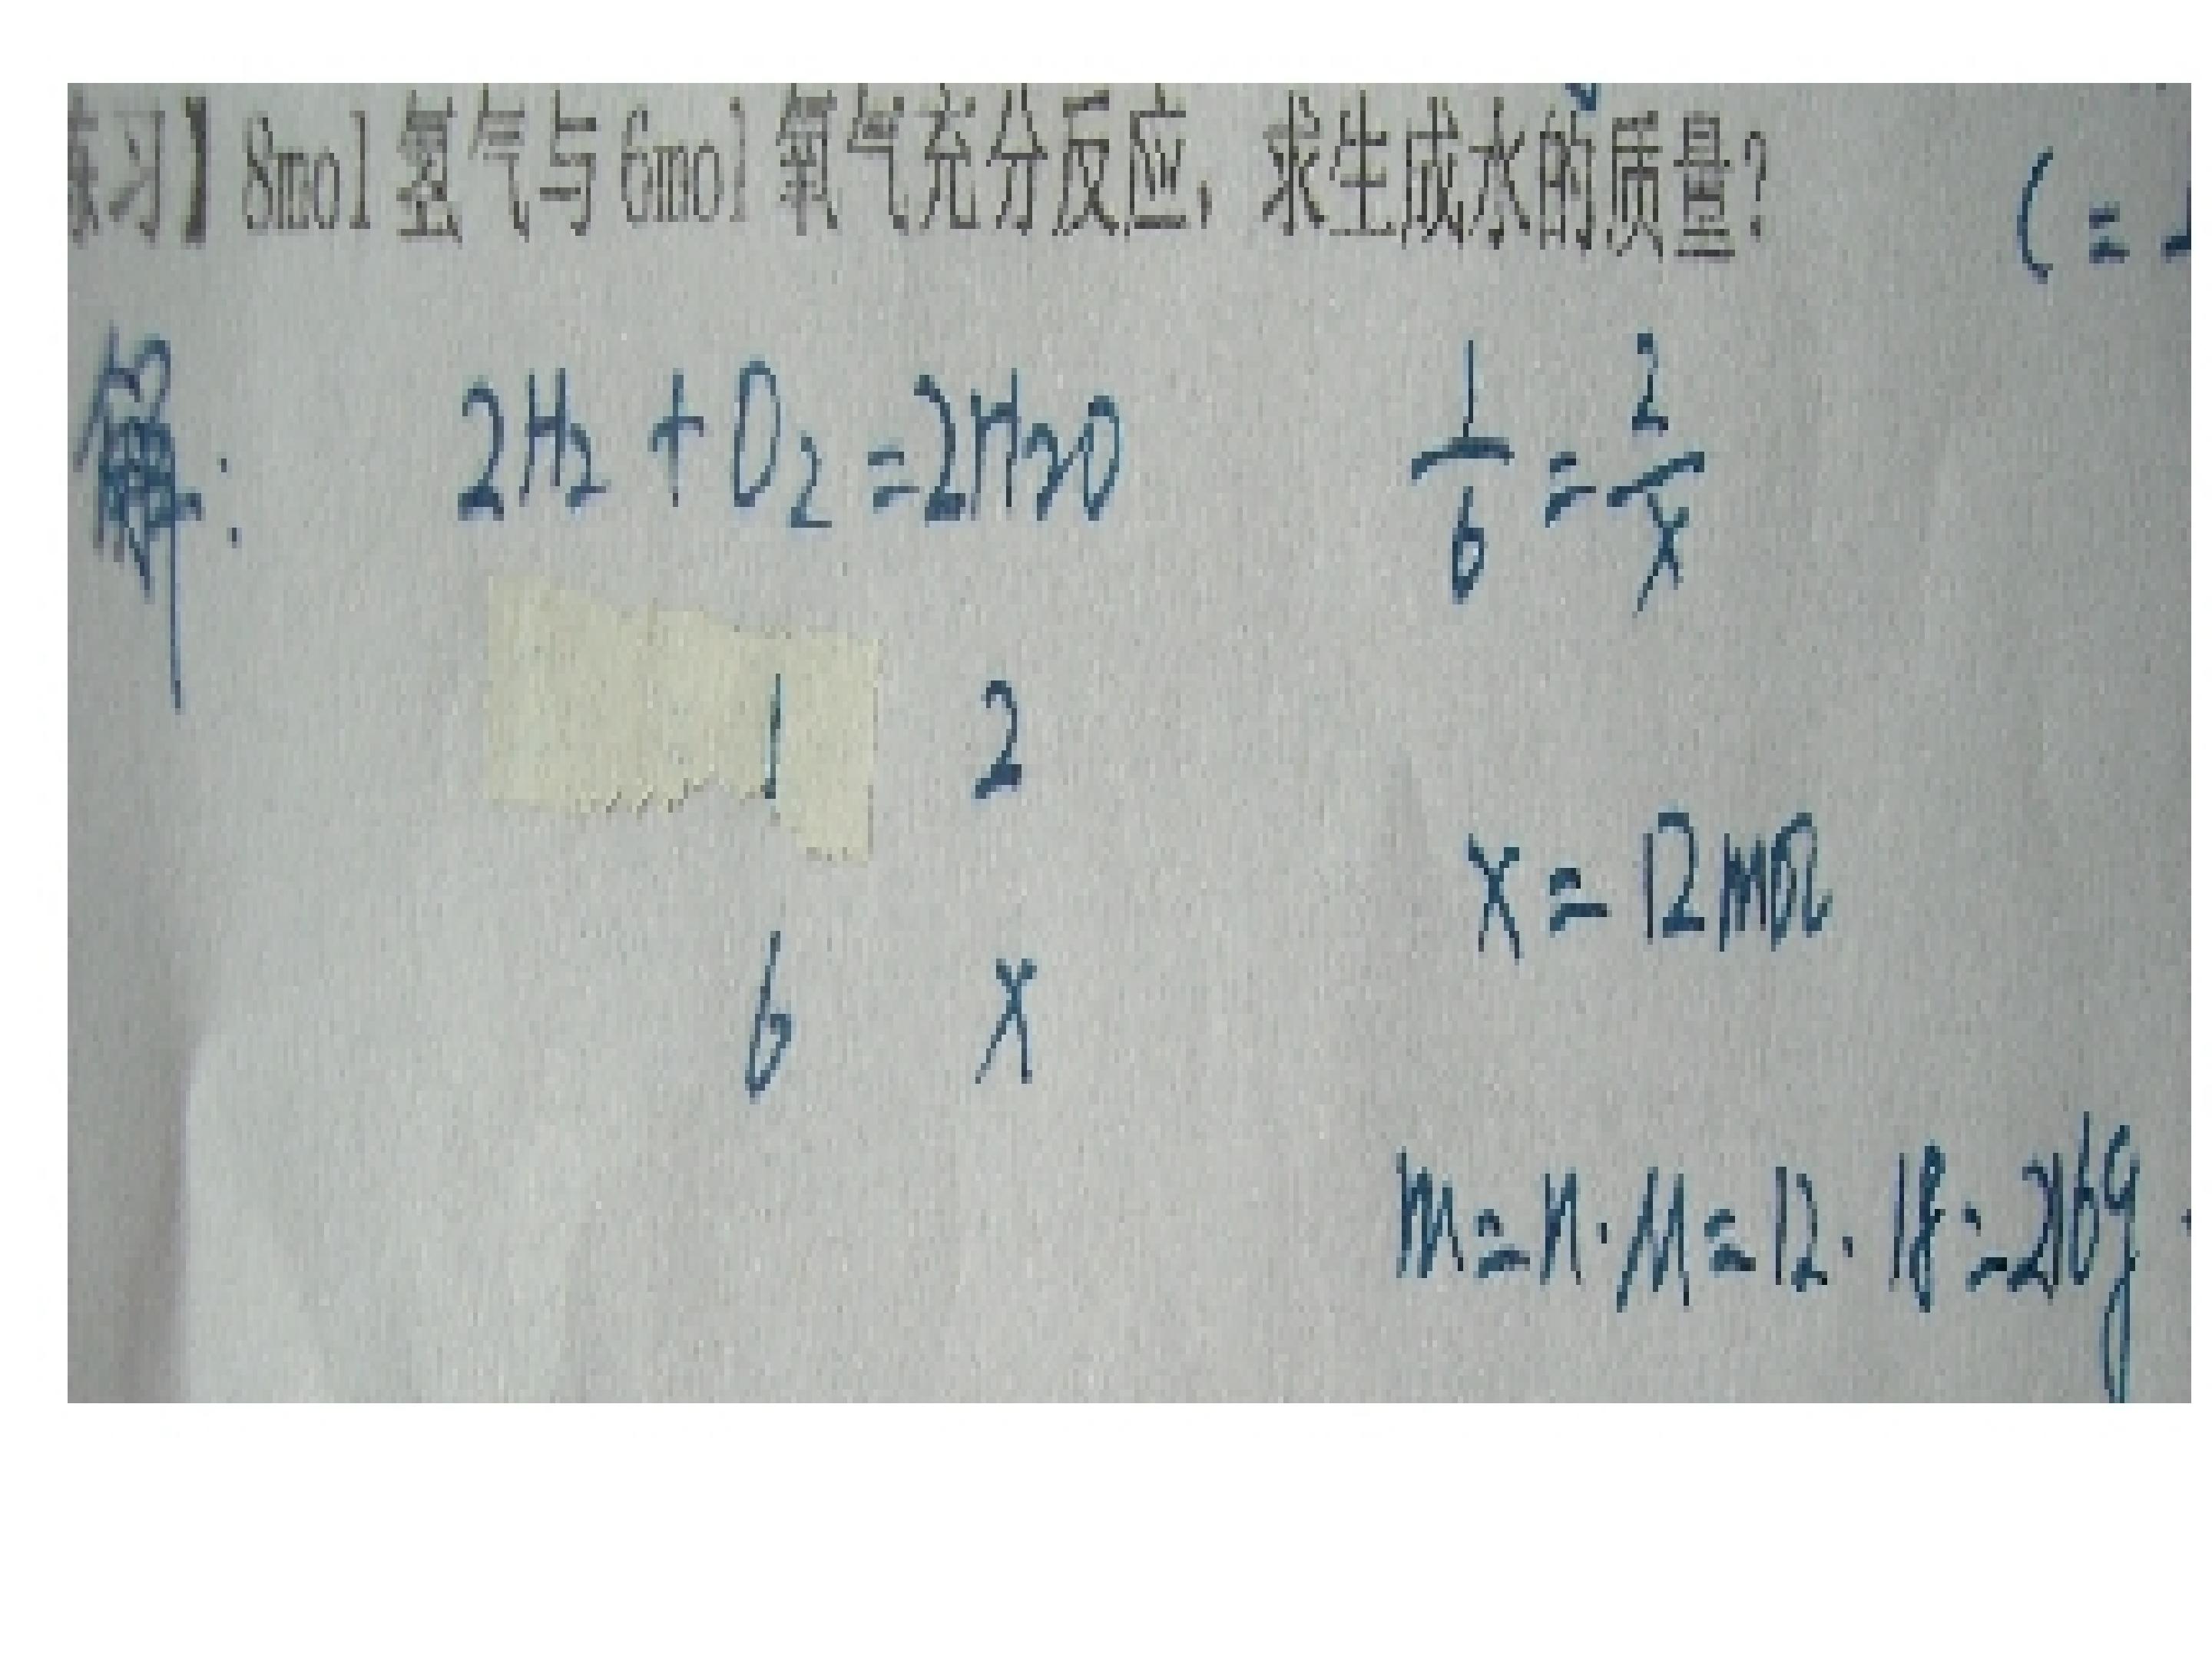 练习】8mol 氢气与 6mol 氧气充分反应，求生成水的质量？
( =
解： 2H₂ + O₂ = 2H₂O
1/6 = 2/x
1 2
x = 12mol
6 x
m = n · M = 12 · 18 = 216g